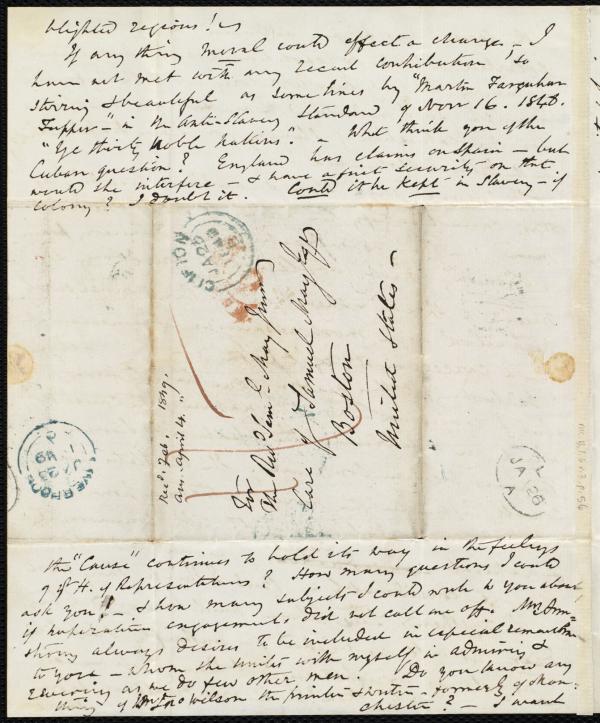 blighted regions! —
If any thing moral could effect a change — I
have not met with any recent contribution so
stirring & beautiful as some lines by "Martin Farquhar
Tupper —" in the Anti-Slavery Standard of Novr 16. 1848.
"Ye thirty noble Nations." — What think you of the
Cuban question? England has claims on Spain — but
would she interfere — & have a first security on that
colony? I doubt it. Could it be kept in Slavery — if
For
The Revd Saml May Junr
Care of Samuel May Esqr
Boston
United States —
Recd. Feb. 1849.
Ans. April 4. "
CLIFTON
JA 26
JA
A
the "Cause" continues to hold its way in the feelings
of yr H. of Representatives? How many questions I could
ask you! — & how many subjects I could write to you about
if imperative engagements did not call me off. Mr Arm=
strong always desires to be included in especial remembrance
to you — whom she unites with myself in admiring &
revering as we do few other men. Do you know any
thing of Wilson the printer & writer — formerly of Man-
chester? — I want